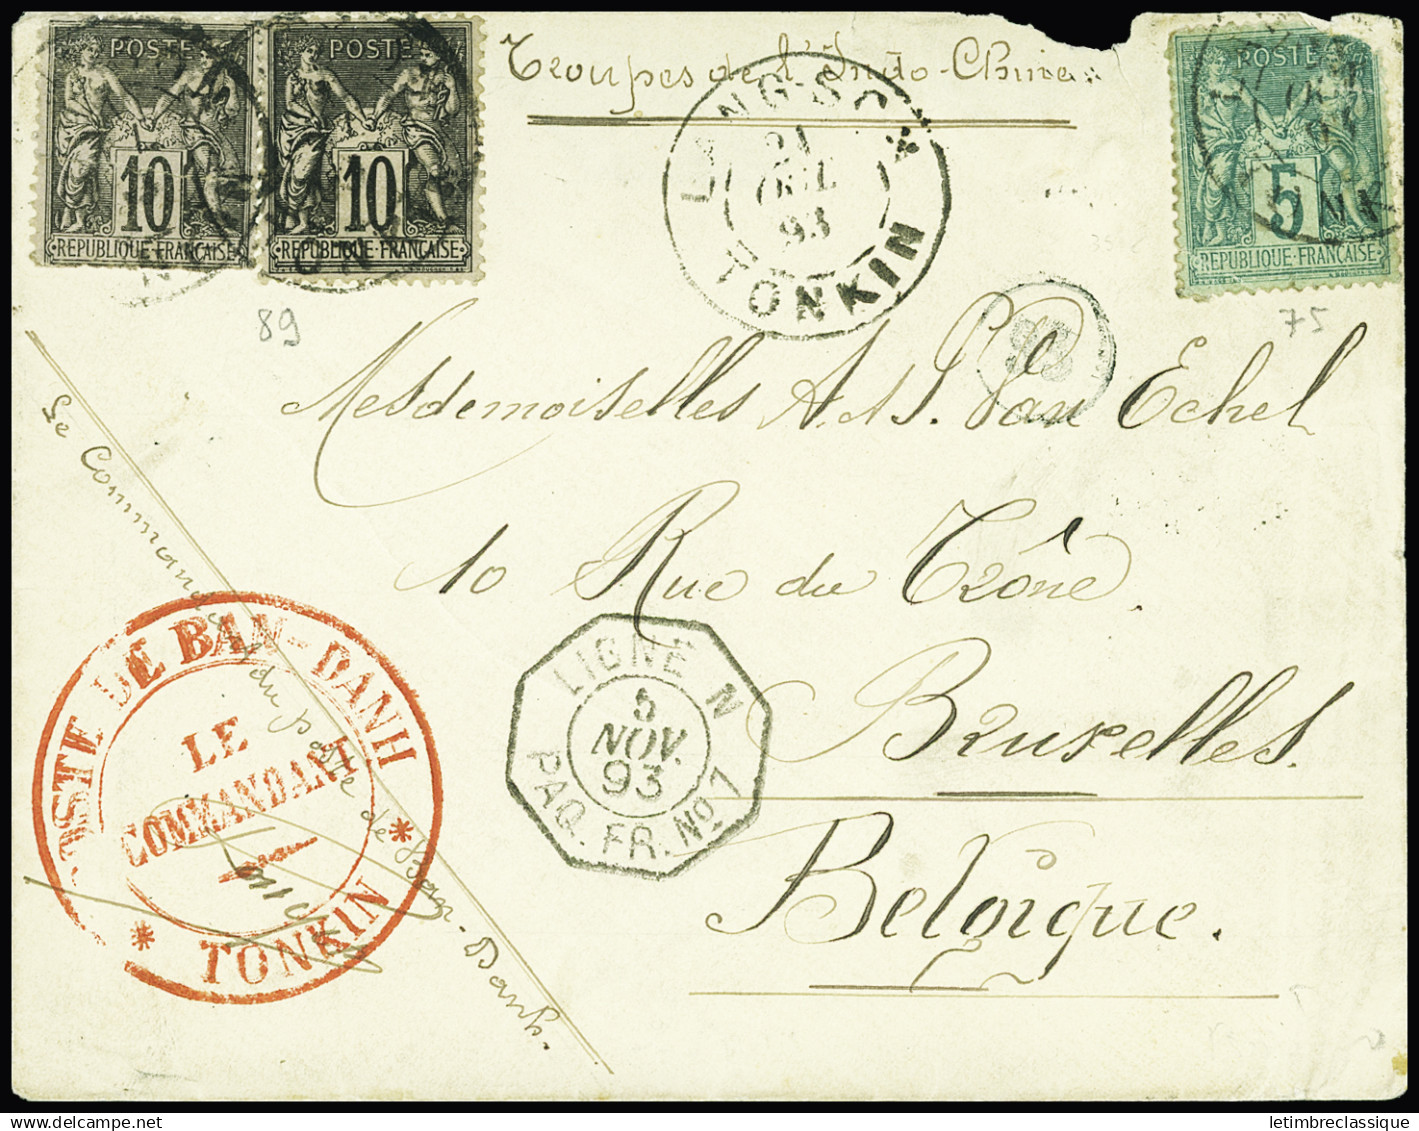 POSTE
10
REPUBLIQUE FRANÇAISE
POSTE
10
REPUBLIQUE FRANÇAISE
Troupes de l'Indo-Chine
POSTE
5
REPUBLIQUE FRANÇAISE
LANG-SON
21
OCT
93
TONKIN
89
75
Mesdemoiselles A. et J. Van Echel
10 Rue du Trône.
Bruxelles.
Belgique.
Le Commandant du poste de Ban-Danh.
POSTE DE BAN-DANH
LE
COMMANDANT
* TONKIN *
LIGNE N
5
NOV.
93
PAQ. FR. Nº 7
letimbreclassique